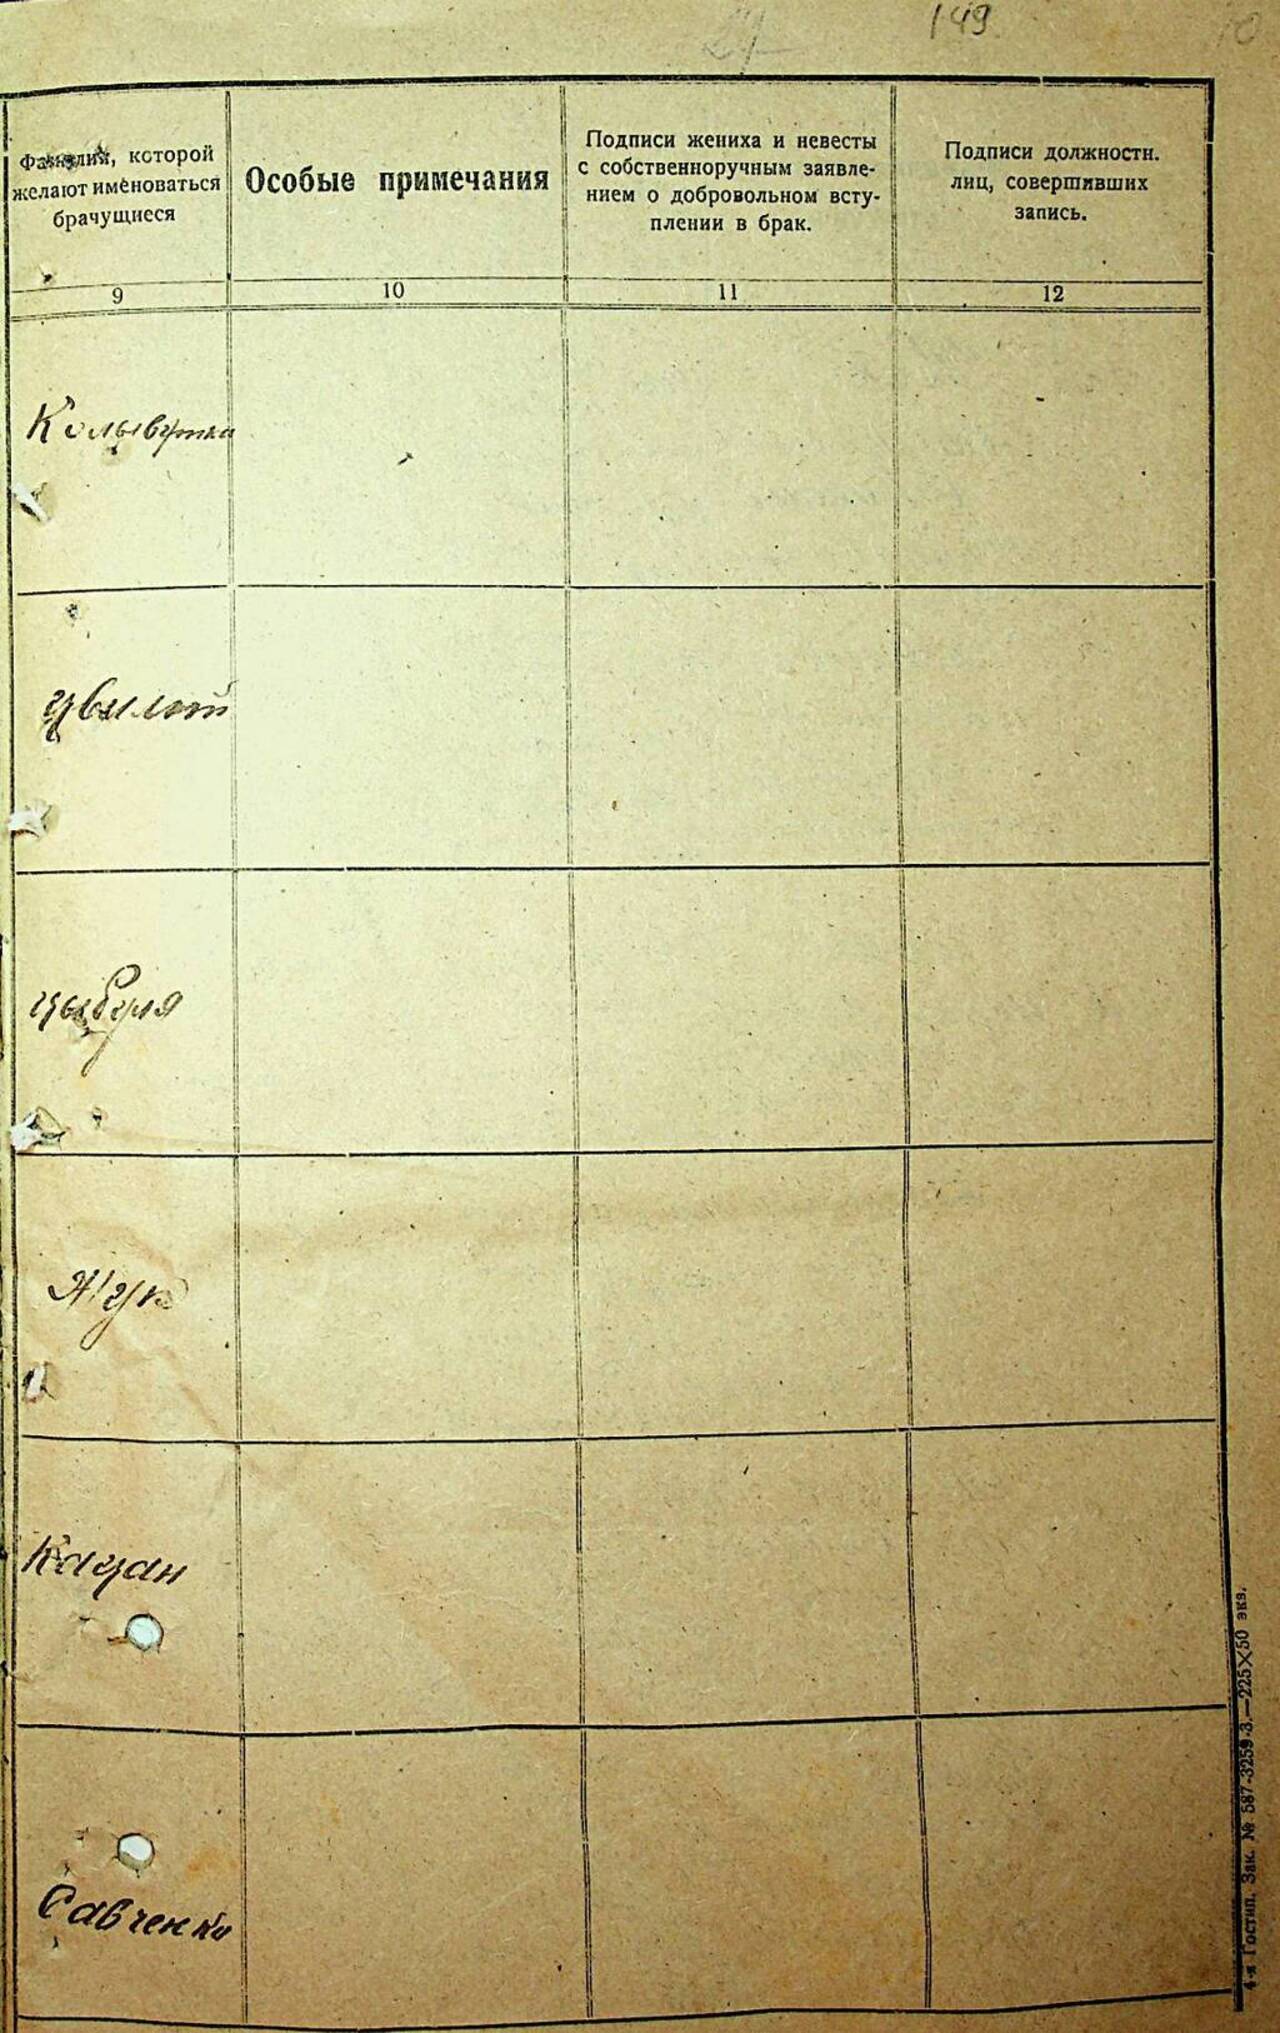 149
Фамилия, которой
желают именоваться
брачущиеся
Особые примечания
Подписи жениха и невесты
с собственноручным заявле-
нием о добровольном всту-
плении в брак.
Подписи должностн.
лиц, совершивших
запись.
9
10
11
12
Колывушка
Цвилий
Цыбуля
Жук
Кацан
Савченко
4-я Гостип. Зак. № 587-3259-3.—225×50 экз.